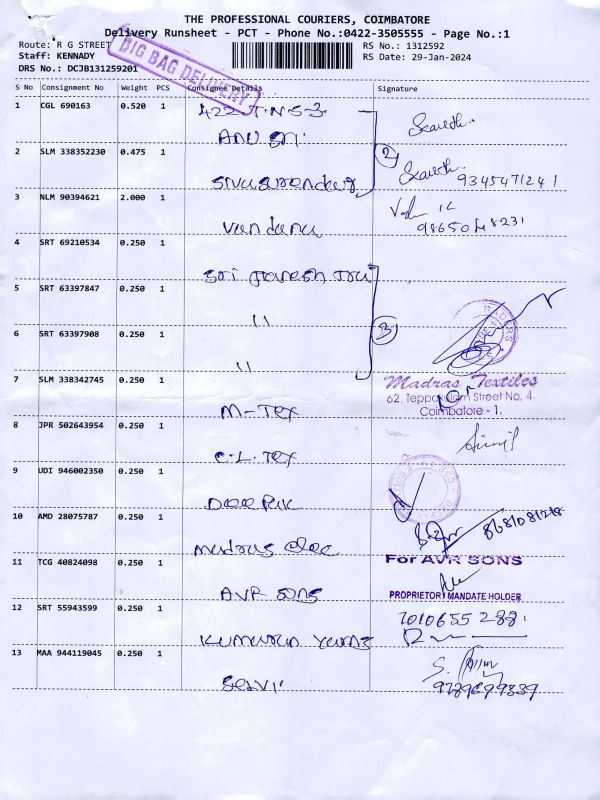 THE PROFESSIONAL COURIERS, COIMBATORE
Delivery Runsheet - PCT - Phone No.:0422-3505555 - Page No.:1
Route: R G STREET
RS No.: 1312592
Staff: KENNADY
RS Date: 29-Jan-2024
DRS No.: DCJB131259201
BIG BAG DELIVERY
S No Consignment No Weight PCS Consignee Details Signature
1 CGL 690163 0.520 1 422 T.N.S-3
Anu Sri
2 SLM 338352230 0.475 1
Sivasurendar 9345471241
3 NLM 90394621 2.000 1
Vandana 9865048231
4 SRT 69210534 0.250 1
Sri Ganesh
5 SRT 63397847 0.250 1
"
6 SRT 63397908 0.250 1
"
7 SLM 338342745 0.250 1
Madras Textiles
62, Teppakulam Street No, 4.
Coimbatore - 1.
M-Tex
8 JPR 502643954 0.250 1
C.L. Tex
9 UDI 946002350 0.250 1
Deepak
10 AMD 28075787 0.250 1
Madras elec
11 TCG 40824098 0.250 1
For AVR SONS
PROPRIETOR / MANDATE HOLDER
AVR Sons
12 SRT 55943599 0.250 1
7010655288
Kumaran Yarns
13 MAA 944119045 0.250 1
Selvi